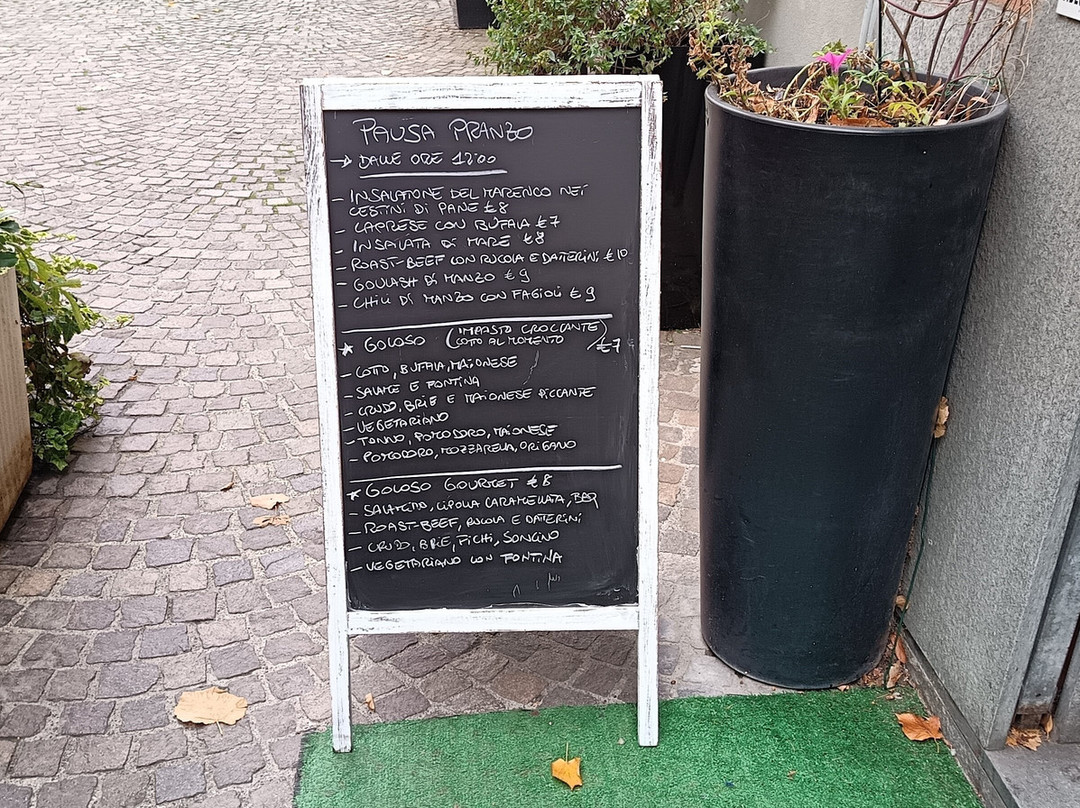 PAUSA PRANZO
→ DALLE ORE 12:00
- INSALATONE DEL MARENCO NEI
CESTINI DI PANE €8
- CAPRESE CON BUFALA €7
- INSALATA DI MARE €8
- ROAST-BEEF CON RUCOLA E DATERINI €10
- GOULASH DI MANZO €9
- CHILI DI MANZO CON FAGIOLI €9
* GOLOSO (IMPASTO CROCCANTE
COTTO AL MOMENTO) €7
- COTTO, BUFALA, MAIONESE
- SALAME E FONTINA
- CRUDO, BRIE E MAIONESE PICCANTE
- VEGETARIANO
- TONNO, POMODORO, MAIONESE
- POMODORO, MOZZARELLA, ORIGANO
* GOLOSO GOURMET €8
- SALAMINO, CIPOLLA CARAMELLATA, BBQ
- ROAST-BEEF, RUCOLA E DATERINI
- CRUDO, BRIE, FICHI, SONCINO
- VEGETARIANO CON FONTINA